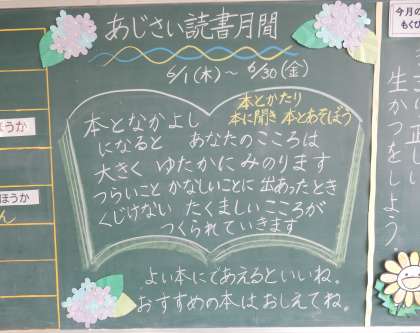 あじさい読書月間
6/1(木)～6/30(金)
本とかたり
本に聞き 本とあそぼう
本となかよし
になると あなたのこころは
大きく ゆたかにみのります
つらいこと かなしいことに 出あったとき
くじけない たくましいこころが
つくられていきます
よい本にであえるといいね。
おすすめの本は おしえてね。
ほうか
ほうか
ん
今月の
もくひ
生かつをしよう。